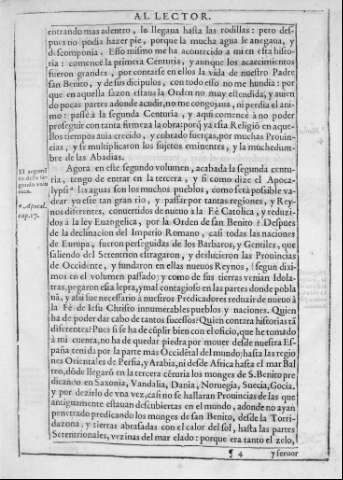 AL LECTOR.
entrando mas adentro, le llegaua hasta las rodillas: pero des-
pues no podia hazer pie, porque la mucha agua le anegaua, y
descomponia. Esto mismo me ha acontecido a mi en esta histo-
ria: comencè la primera Centuria, y aunque los acaecimientos
fueron grandes, por contarse en ellos la vida de nuestro Padre
san Benito, y de sus dicipulos, con todo esso no me hundia: por
que en aquella sazon estaua la Orden no muy estendida, y auien
do pocas partes adonde acudir, no me congojaua, ni perdia el ani-
mo: passè à la segunda Centuria, y aqui comencè à no poder
proseguir con tanta firmeza la obra: porq̃ ya esta Religiõ en aque-
llos tiempos auia crecido, y cobrado fuerças, por muchas Prouin-
cias, y se multiplicaron los sujetos eminentes, y la muchedum-
bre de las Abadias.
Agora en este segundo volumen, acabada la segunda centu-
ria, tengo de entrar en la tercera, y si como dize el Apoca-
lypsi las aguas son los muchos pueblos, como será possible va-
dear yo este tan gran rio, y passar por tantas regiones, y Rey-
nos diferentes, conuertidos de nueuo à la Fè Catolica, y reduzi-
dos à la ley Euangelica, por la Orden de san Benito? Despues
de la declinacion del Imperio Romano, casi todas las naciones
de Europa, fueron perseguidas de los Barbaros, y Gentiles, que
saliendo del Setentrion estragaron, y destruyeron las Prouincias
de Occidente, y fundaron en ellas nueuos Reynos, segun dixi-
mos en el volumen passado; y como de sus tierras venian Idola-
tras, pegaron esta lepra, y mal contagioso en las partes donde pobla
uã, y assi fue necessario à nuestros Predicadores reduzir de nueuo à
la Fè de Iesu Christo innumerables pueblos y naciones. Quien
ha de poder dar cabo de tantos sucessos? Quien contara historias tã
diferentes? Pues si se ha de cũplir bien con el oficio, que he tomado
à mi cuenta, no ha de quedar piedra por mouer desde nuestra Es-
paña tenida por la parte mas Occidẽtal del mundo, hasta las regio
nes Orientales de Persia, y Arabia, ni desde Africa hasta el mar Bal
teo, dõde llegarõ en la tercera cẽturia los monges de S. Benito pre
dicando en Saxonia, Vandalia, Dania, Noruegia, Suecia, Gocia,
y por dezirlo de vna vez, casi no se hallaran Prouincias de las que
antiguamente estauan descubiertas en el mundo, adonde no ayan
penetrado predicando los monges de san Benito, desde la Torri-
dazona, y tierras abrasadas con el calor del sol, hasta las partes
Setentrionales, vezinas del mar elado: porque era tanto el zelo,
¶ 4 y feruor
El argumẽ
to deste se-
gundo volu
men.
a Apocal.
cap. 17.